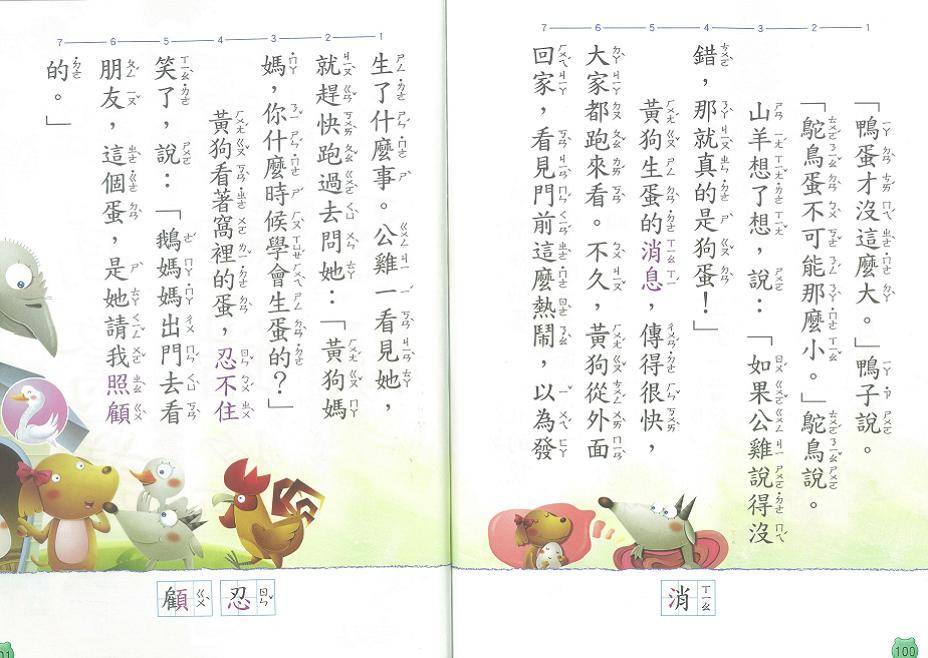 1 2 3 4 5 6 7
「鴨蛋才沒這麼大。」鴨子說。
「鴕鳥蛋不可能那麼小。」鴕鳥說。
山羊想了想，說：「如果公雞說得沒
錯，那就真的是狗蛋！」
黃狗生蛋的消息，傳得很快，
大家都跑來看。不久，黃狗從外面
回家，看見門前這麼熱鬧，以為發
消 ㄒㄧㄠ
100
1 2 3 4 5 6 7
生了什麼事。公雞一看見她，
就趕快跑過去問她：「黃狗媽
媽，你什麼時候學會生蛋的？」
黃狗看著窩裡的蛋，忍不住
笑了，說：「鵝媽媽出門去看
朋友，這個蛋，是她請我照顧
的。」
忍 ㄖㄣˇ
顧 ㄍㄨˋ